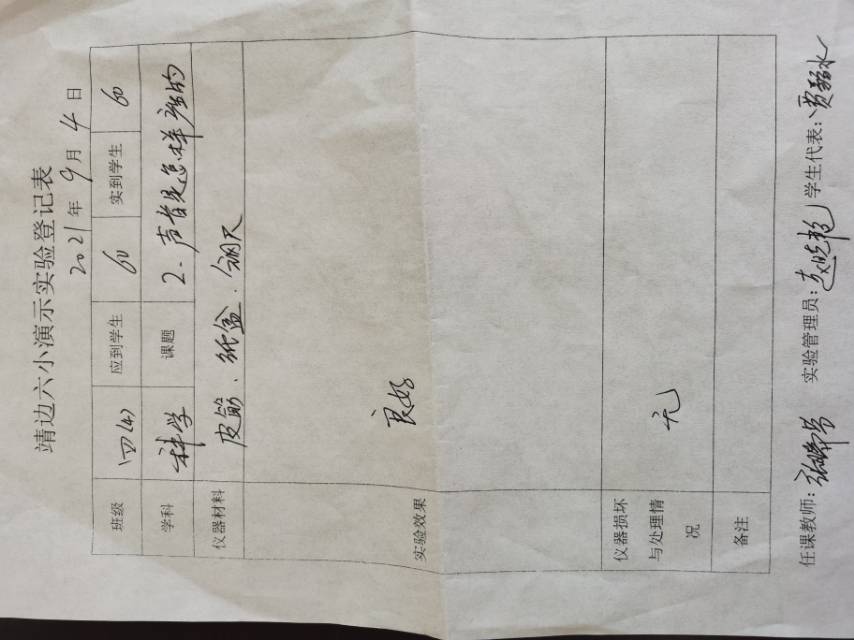 靖边六小演示实验登记表
2021年9月4日
班级 四(4) 应到学生 60 实到学生 60
学科 科学 课题 2、声音是怎样产生的
仪器材料 皮筋、纸盒、钢尺
实验效果 良好
仪器损坏与处理情况 无
备注
任课教师: 实验管理员: 学生代表: